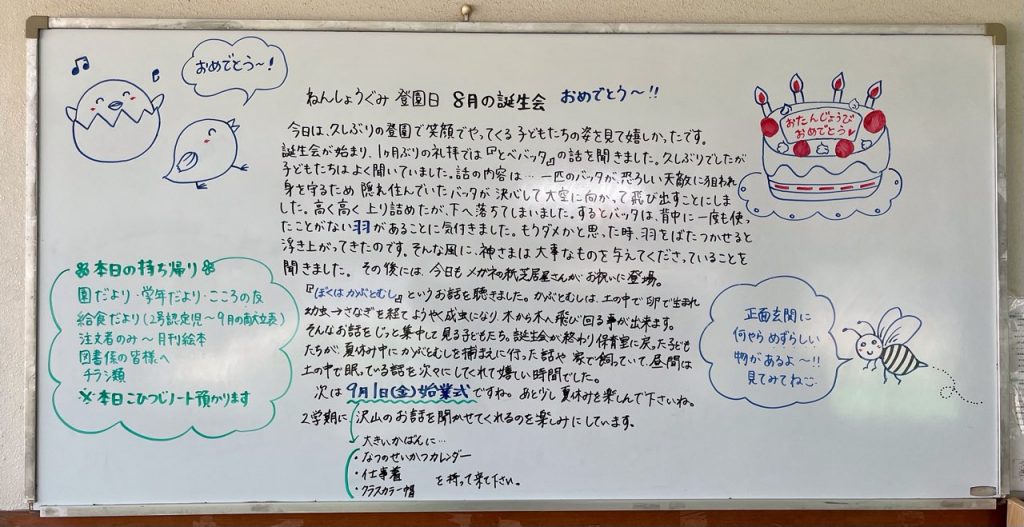 おめでとう〜!
ねんしょうぐみ 登園日 8月の誕生会 おめでとう〜!!
今日は、久しぶりの登園で笑顔でやってくる子どもたちの姿を見て嬉しかったです。
誕生会が始まり、1ヶ月ぶりの礼拝では『とべバッタ』の話を聞きました。久しぶりでしたが
子どもたちはよく聞いていました。話の内容は…一匹のバッタが、恐ろしい天敵に狙われ
身を守るため 隠れ住んでいたバッタが 決心して大空に向かって飛び出すことにしま
した。高く高く上り詰めたが、下へ落ちてしまいました。するとバッタは、背中に一度も使っ
たことがない羽があることに気付きました。もうダメかと思った時、羽をばたつかせると
浮き上がってきたのです。そんな風に、神さまは大事なものを与えてくださっていることを
聞きました。その後には、今日もメガネの紙芝居屋さんがお祝いに登場。
『ぼくはかぶとむし』というお話を聴きました。かぶとむしは、土の中で卵で生まれ
幼虫→さなぎを経てようやく成虫になり、木から木へ飛び回る事が出来ます。
そんなお話をじっと集中して見る子どもたち。誕生会が終わり保育室に戻った子ども
たちが、夏休み中にかぶとむしを捕まえに行った話や 家で飼っていて、昼間は
土の中で眠っている話を次々にしてくれて嬉しい時間でした。
次は 9月1日(金)始業式ですね。あと少し夏休みを楽しんで下さいね。
2学期に沢山のお話を聞かせてくれるのを楽しみにしています。
大きいかばんに…
・なつのせいかつカレンダー
・仕事着
・クラスカラー帽
を持って来て下さい。
おたんじょうび
おめでとう♥
本日の持ち帰り
園だより・学年だより・こころの友
給食だより(2号認定児〜9月の献立表)
注文者のみ〜月刊絵本
図書係の皆様へ
チラシ類
※本日こひつじノート預かります
正面玄関に
何やらめずらしい
物があるよ〜!!
見てみてね